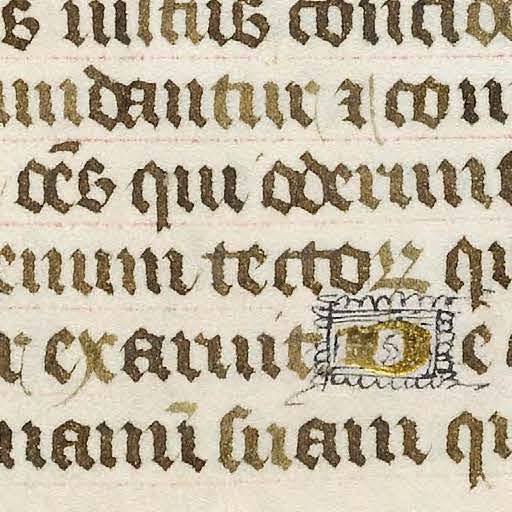 s iustus concid
undantur ⁊ con
oēs qui oderunt
enum tectoꝝ qu
r exaruit 5 e
manū suam qu